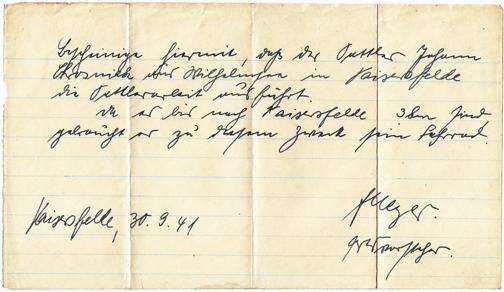 Bescheinige hiermit, daß der Sattler Johann
aus Wilhelmsee in Kaisersfelde
die Sattlerarbeit ausführt.
Da es bis nach Kaisersfelde 3 km sind,
gebraucht er zu diesem Zweck sein Fahrrad.
Kaisersfelde, 30.9.41
Meyer.
Ortsvorsteher.